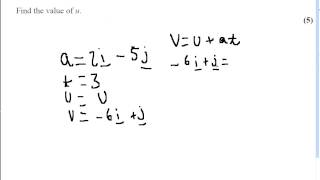 Find the value of u.
(5)
a = 2i - 5j
t = 3
u = u
v = -6i + j
V = u + at
-6i + j =